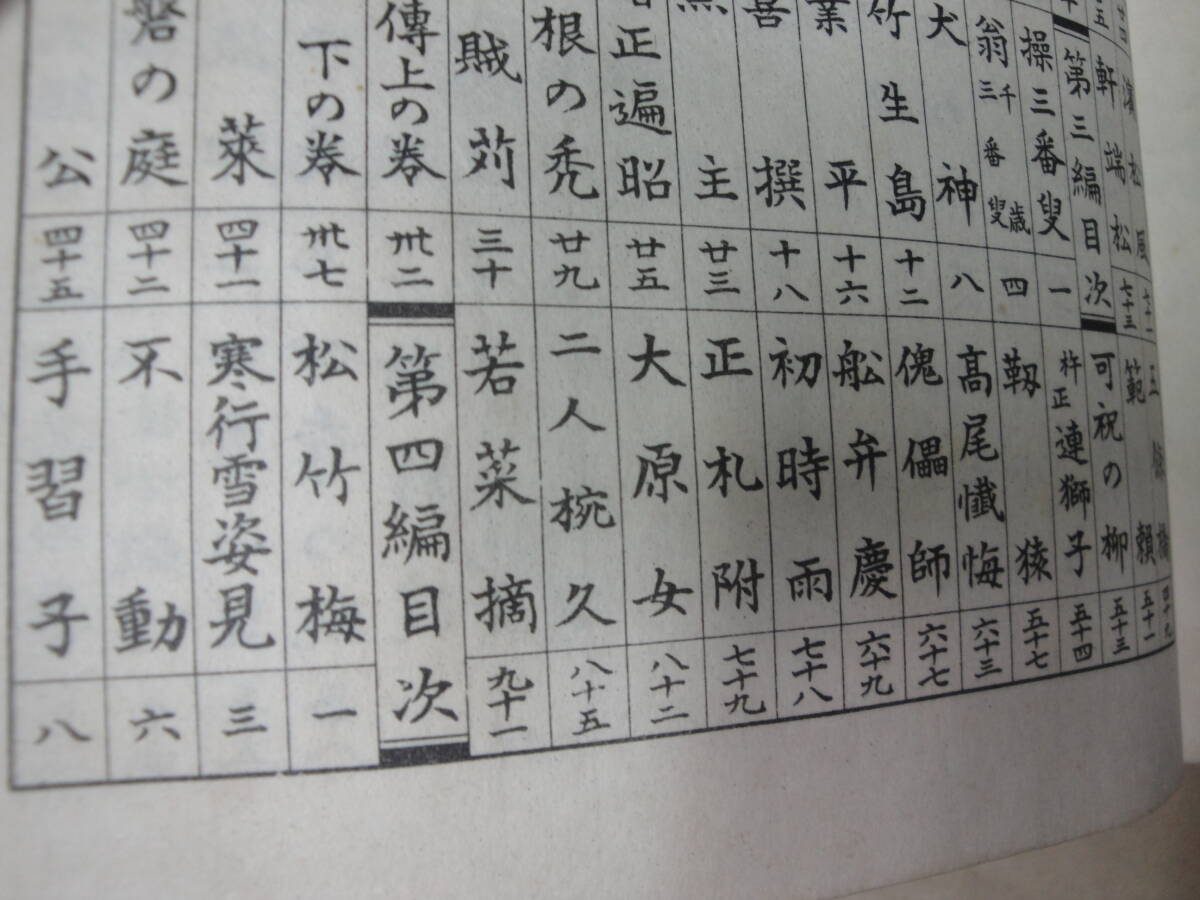 濱松風
軒端松 七十三
第三編目次
操三番叟 一
翁千歳三番叟 四
犬神 八
竹生島 十二
業平 十六
撰 十八
主 廿三
正遍昭 廿五
根の禿 廿九
賊苅 三十
傳上の巻 卅二
下の巻 卅七
莱 四十一
磐の庭 四十二
公 四十五
橋
範賴 五十一
可祝の柳 五十三
杵正連獅子 五十四
靱猿 五十七
高尾懺悔 六十三
傀儡師 六十七
船弁慶 六十九
初時雨 七十八
正札附 七十九
大原女 八十二
二人椀久 八十五
若菜摘 九十一
第四編目次
松竹梅 一
寒行雪姿見 三
不動 六
手習子 八